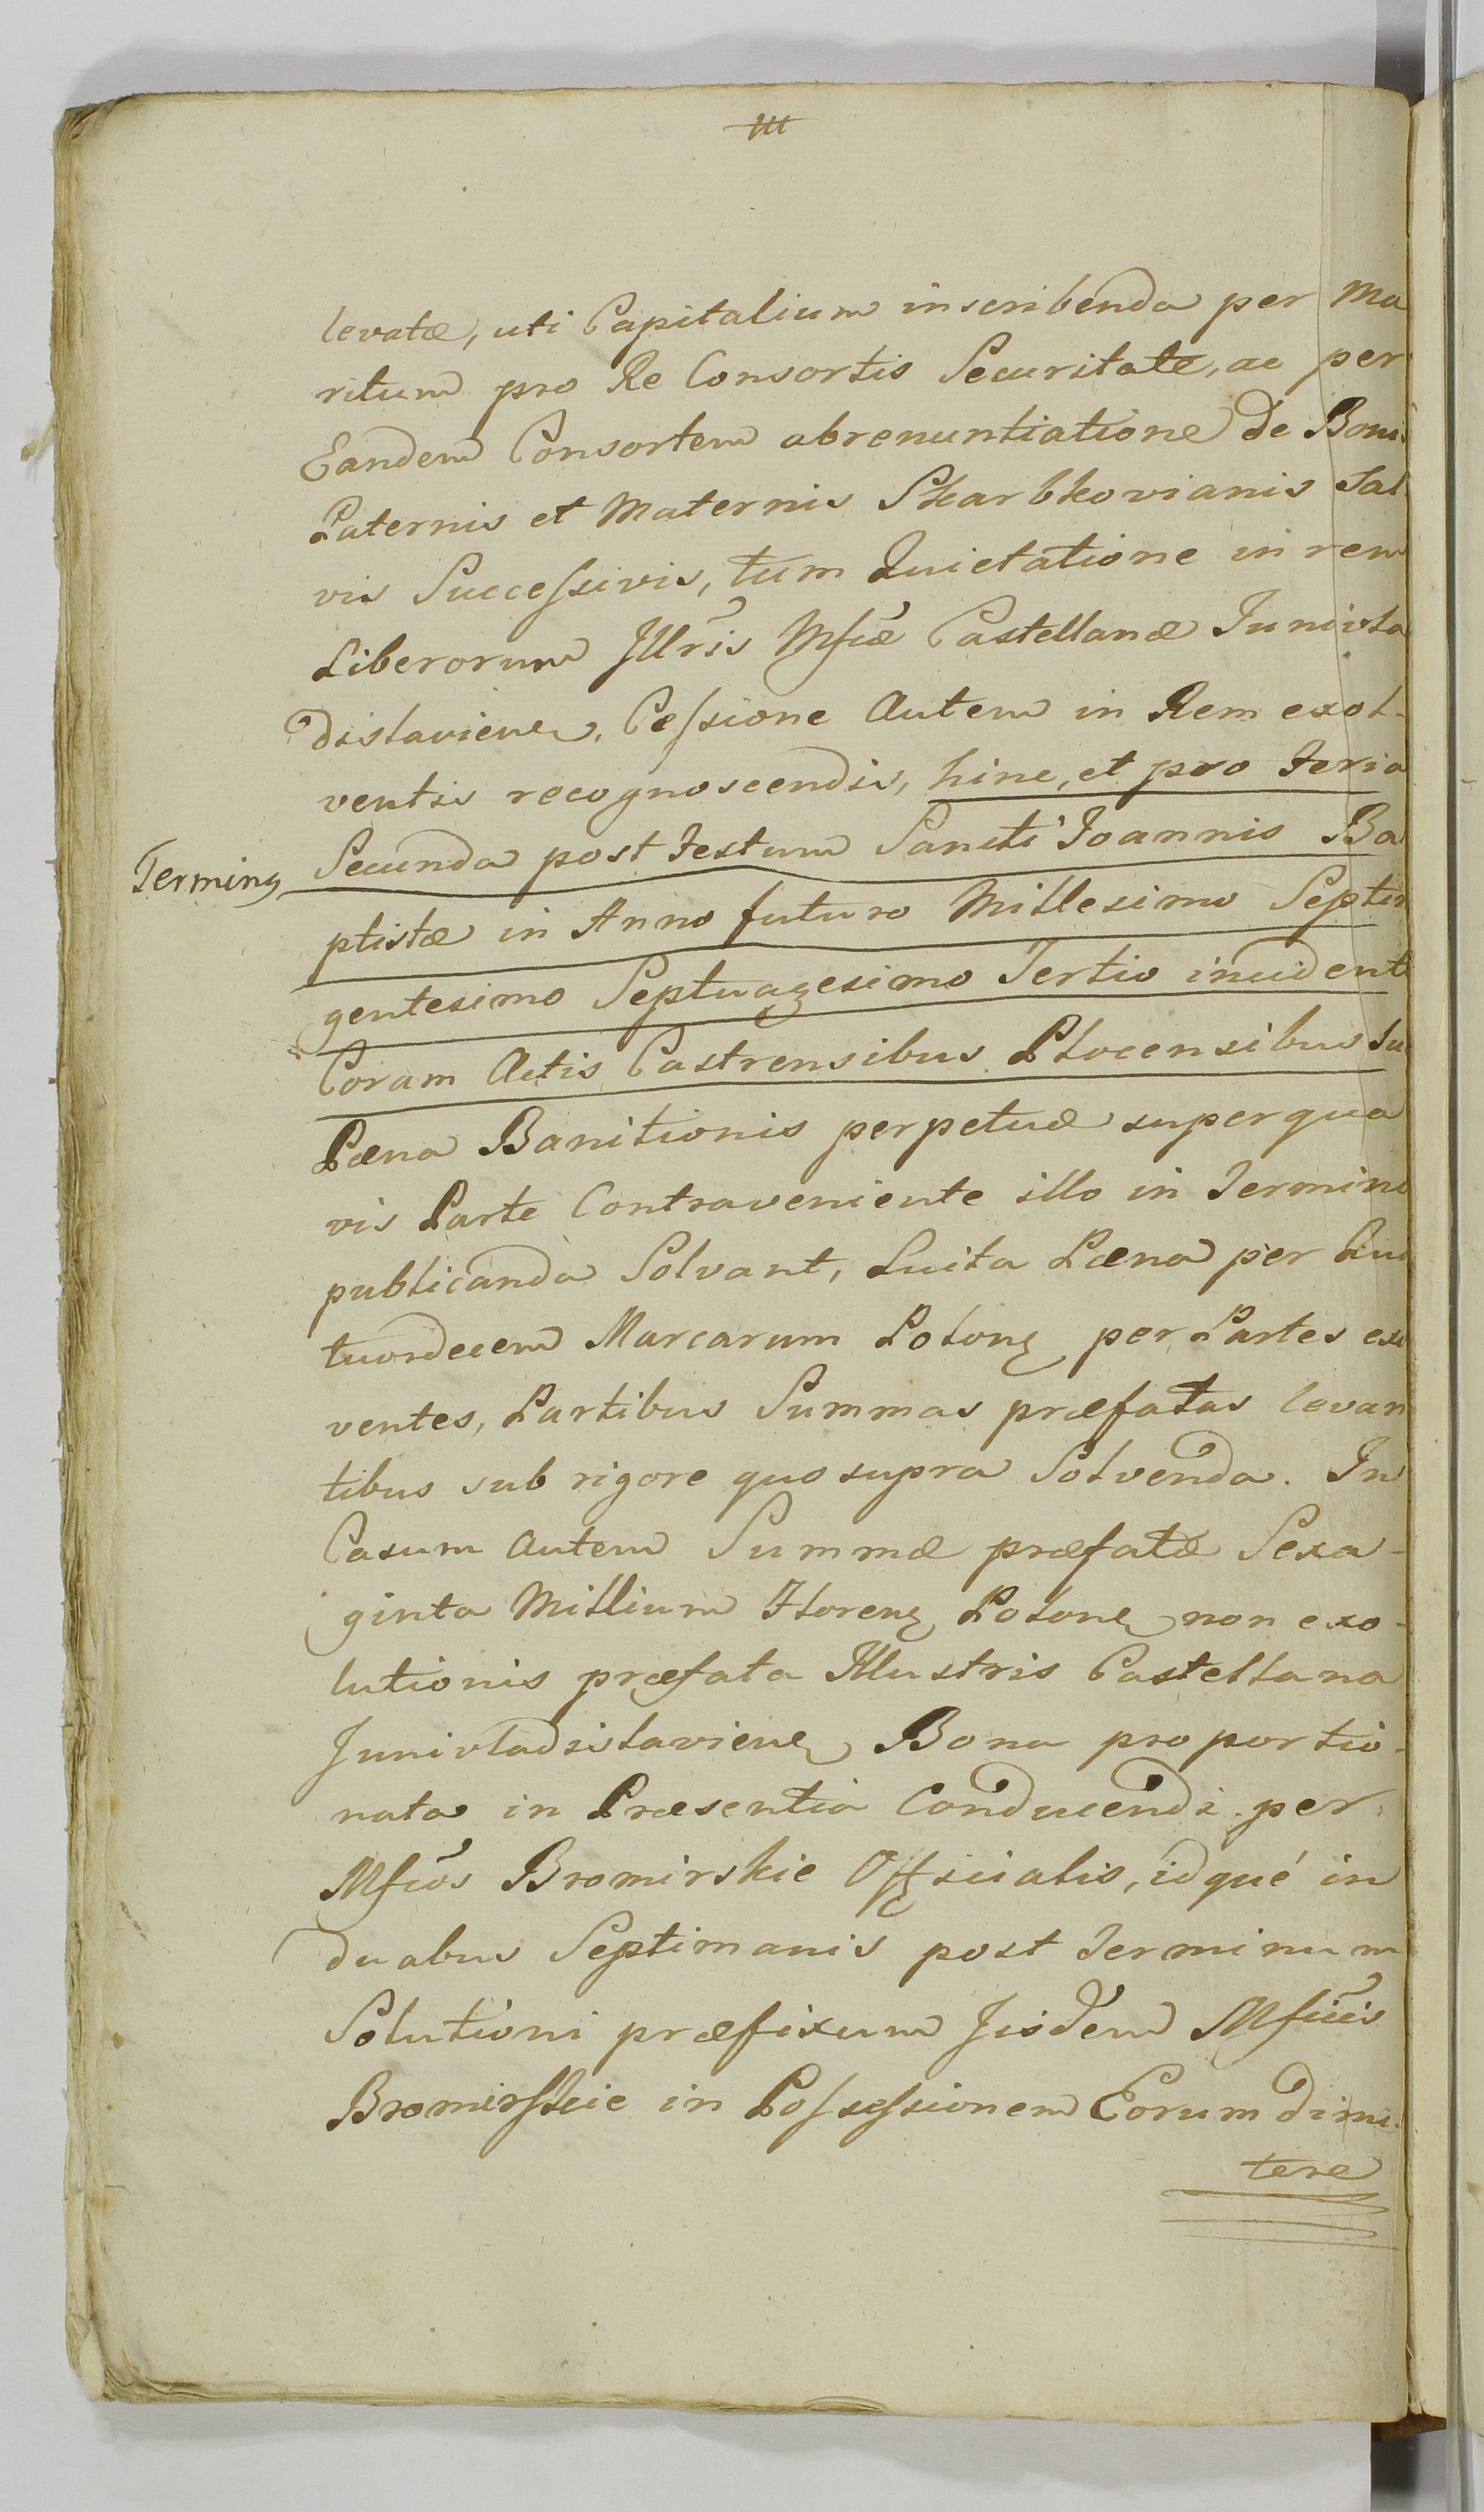 levatæ, uti Capitalium inscribenda per Ma
ritum pro Re Consortis Securitate, ac per
Eandem Consortem abrenuntiatione de Boni
Paternis et Maternis Skarbkovianis Sal
vis Successivis, tum Quietatione in rem
Liberorum Jllr̃is Mfcæ Castellanæ Junivla
dislaviens, Cessione Autem in Rem exol-
ventis recognoscendis, hinc, et pro Feria
Terming Secunda post Festum Sancti Joannis Ba
ptistæ in Anno futuro Millesimo Septin
gentesimo Septuagesimo Tertio incident
Coram Actis Castrensibus Plocensibus su
Pæna Banitionis perpetuæ super qua
vis Parte Contraveniente illo in Termino
publicanda Solvant, Luita Pæna per Qua
tuordecem Marcarum Polong per Partes
ventes, Partibus Summas præfatas levan
tibus sub rigore quo supra Solvenda. In
Casum Autem Summæ præfatæ Sexa-
ginta Millium Floreng Polong non exo-
lutionis præfata Jllustris Castellana
Junivladislavieng Bona proportio-
nata in Præsentia Conducendi per
Mfcos Bromirskie Officialis, idqué in
duabus Septimanis post Terminum
Solutioni præfixum Jisdem Mfcis
Bromirskie in Possessionem Eorum dimi-
tere